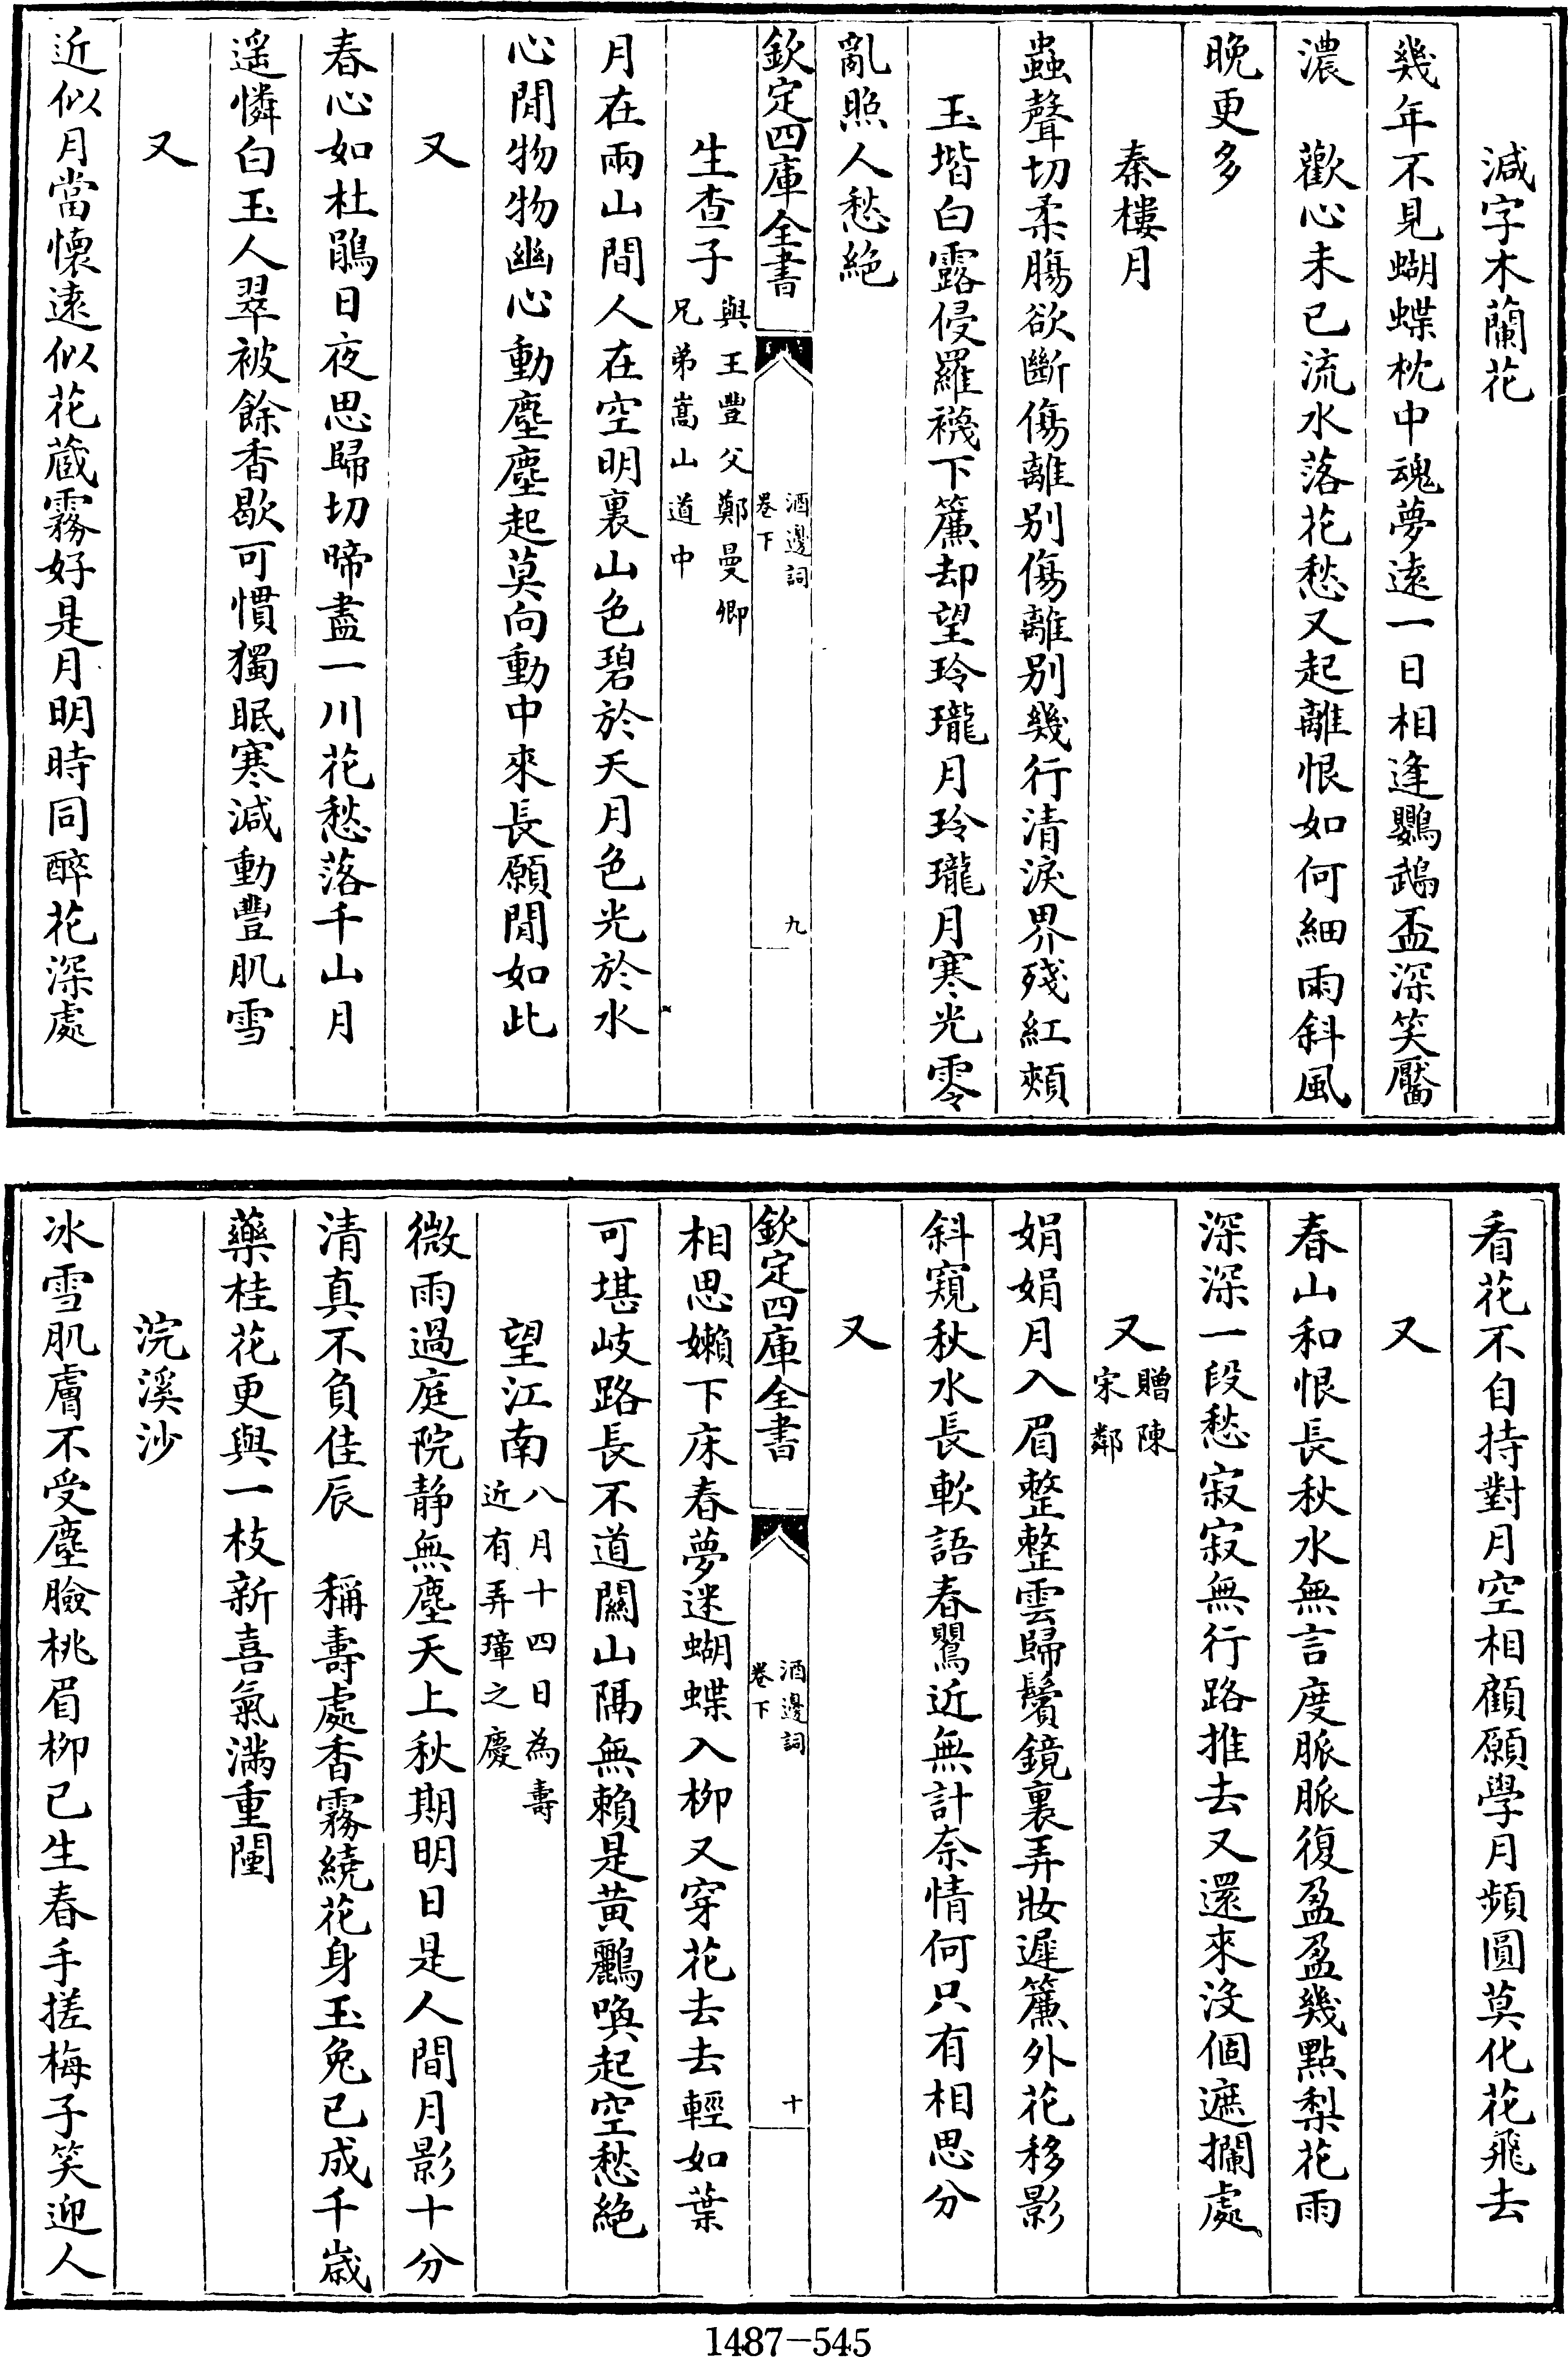 減字木蘭花
幾年不見蝴蝶枕中魂夢遠一日相逢鸚鵡盃深笑靨
濃　歡心未已流水落花愁又起離恨如何細雨斜風
晚更多
秦樓月
蟲聲切柔腸欲斷傷離别傷離别幾行清淚界殘紅頰
玉堦白露侵羅襪下簾却望玲瓏月玲瓏月寒光零
亂照人愁絶
欽定四庫全書
酒邊詞
卷下
九
生查子
與王豐父鄭曼卿
兄弟嵩山道中
月在兩山間人在空明裏山色碧於天月色光於水
心閒物物幽心動塵塵起莫向動中來長願閒如此
又
春心如杜鵑日夜思歸切啼盡一川花愁落千山月
遥憐白玉人翠被餘香歇可慣獨眠寒減動豐肌雪
又
近似月當懷逺似花藏霧好是月明時同醉花深處
看花不自持對月空相顧願學月頻圓莫化花飛去
又
春山和恨長秋水無言度脈脈復盈盈幾點梨花雨
深深一段愁寂寂無行路推去又還來没個遮攔處
又
贈陳
宋鄰
娟娟月入眉整整雲歸鬢鏡裏弄妝遲簾外花移影
斜窺秋水長軟語春鶯近無計奈情何只有相思分
又
欽定四庫全書
酒邊詞
卷下
十
相思嬾下床春夢迷蝴蝶入柳又穿花去去輕如葉
可堪岐路長不道關山隔無賴是黄鸝喚起空愁絶
望江南
八月十四日為壽
近有弄璋之慶
微雨過庭院静無塵天上秋期明日是人間月影十分
清真不負佳辰　稱壽處香霧繞花身玉兔已成千歳
藥桂花更與一枝新喜氣滿重闉
浣溪沙
冰雪肌膚不受塵臉桃眉柳已生春手搓梅子笑迎人
1487-545